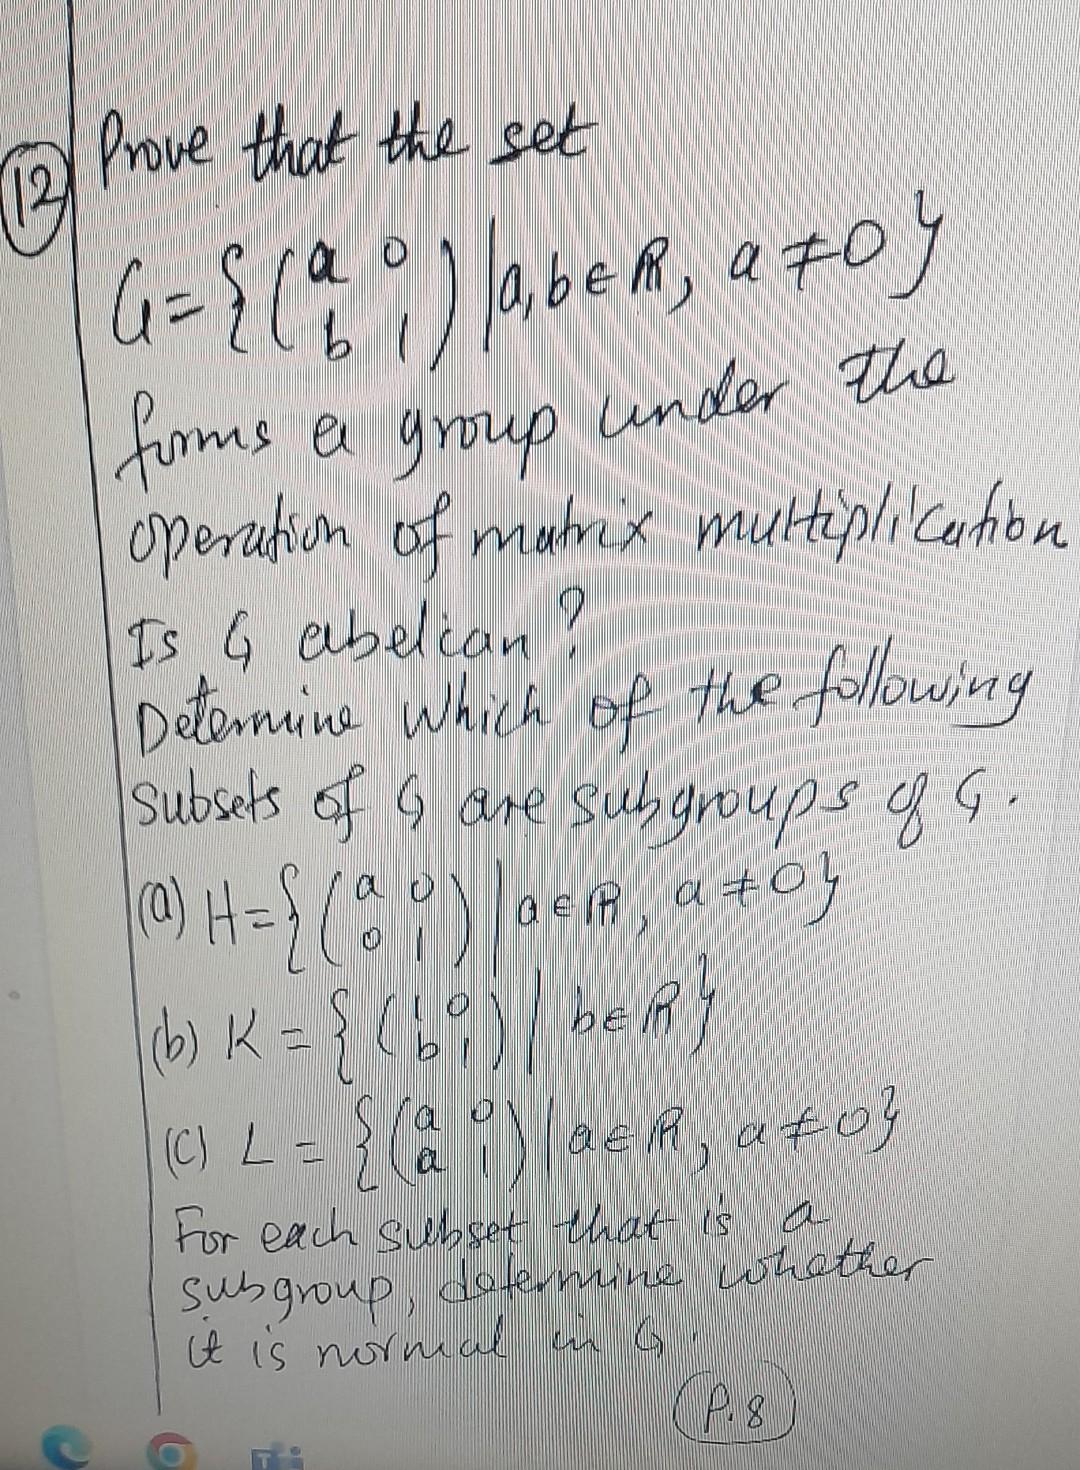 (12) Prove that the set
G = { ( a 0
b 1 ) | a, b ∈ ℝ, a ≠ 0 }
forms a group under the
operation of matrix multiplication
Is G abelian?
Determine which of the following
subsets of G are subgroups of G.
(a) H = { ( a 0
0 1 ) | a ∈ ℝ, a ≠ 0 }
(b) K = { ( 1 0
b 1 ) | b ∈ ℝ }
(c) L = { ( a 0
a 1 ) | a ∈ ℝ, a ≠ 0 }
For each subset that is a
subgroup, determine whether
it is normal in G.
P.8